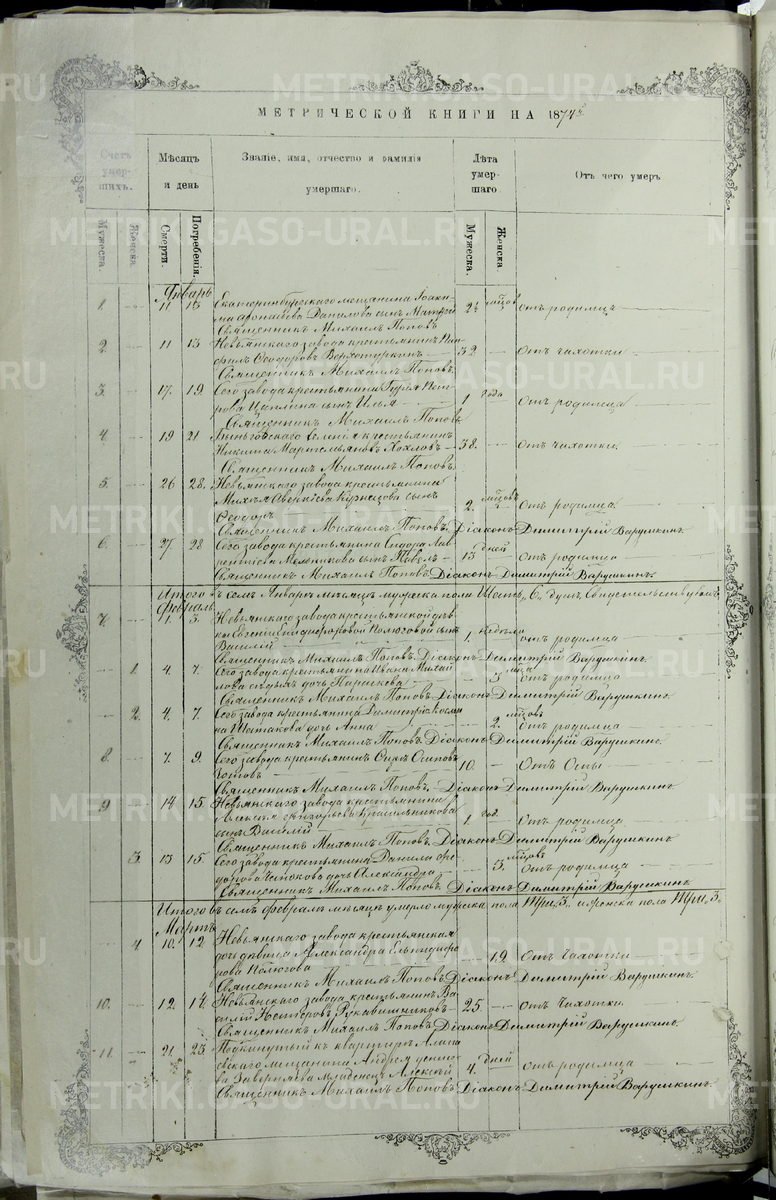 МЕТРИЧЕСКОЙ КНИГИ НА 1874
Счетъ умер- шихъ.
Мѣсяцъ и день
Званіе, имя, отчество и фамилія умершаго.
Лѣта умер- шаго.
Отъ чего умеръ
Мужеска. Женска. Смерти. Погребенія. Мужеска. Женска.
Январь
1. 11 13 Екатеринбургскаго мещанина
Данилова сынъ
Священникъ Михаилъ Поповъ
2½ мѣсяцов Отъ родимца
2. 11 13 Невьянскаго завода крестьянинъ
Ѳеодоровъ Верхотуркинъ 32 Отъ чахотки
Священникъ Михаилъ Поповъ.
3. 17. 19. Сего завода крестьянина Гурія Пет-
рова сынъ Илья 1 года Отъ родимца
Священникъ Михаилъ Поповъ
4. 19 21 селенія крестьянинъ
Никита Мартемьяновъ Хохловъ 38. Отъ чахотки.
Священникъ Михаилъ Поповъ
5. 26 28. Невьянскаго завода крестьянина
Аверкіева Кузнецова сынъ
Ѳеодоръ 2. Отъ родимца
Священникъ Михаилъ Поповъ. Діаконъ Димитрій Варушкинъ.
6. 27. 28 Сего завода крестьянина Сидора Лав-
рентіева Мельникова сынъ Павелъ 13 дней Отъ родимца
Священникъ Михаилъ Поповъ Діаконъ Димитрій Варушкинъ.
Итого въ семъ Январѣ мѣсяцѣ мужеска пола Шесть, 6. душъ
Февраль
7. 1. 3. Невьянскаго завода крестьянской дѣв-
ки Евгеніи сынъ
Василій 1. недѣля отъ родимца
Священникъ Михаилъ Поповъ. Діаконъ Димитрій Варушкинъ.
1 4. 7. Сего завода крестьянина Ивана Михай-
лова дочь Параскева 3 отъ родимца
Священникъ Михаилъ Поповъ. Діаконъ Димитрій Варушкинъ.
2. 4. 7. Сего завода крестьянина Димитрія
дочь Анна 2. Отъ родимца
Священникъ Михаилъ Поповъ Діаконъ Димитрій Варушкинъ.
8. 7. 9. Сего завода крестьянинъ Осиповъ
10. Отъ Оспы
Священникъ Михаилъ Поповъ. Діаконъ Димитрій Варушкинъ
9 14 15 Невьянскаго завода крестьянина
Григорьева Красильникова
сынъ Василій 1 год. Отъ родимца
Священникъ Михаилъ Поповъ. Діаконъ Димитрій Варушкинъ
3. 13 15. Сего завода крестьянина Данила
дочь Александра 3. Отъ родимца
Священникъ Михаилъ Поповъ. Діаконъ Димитрій Варушкинъ
Итого въ семъ февралѣ мѣсяцѣ умерло мужеска пола Три, 3. женска пола Три, 3.
Мартъ
4 10. 12. Невьянскаго завода крестьянская
дочь дѣвица Александра
19 Отъ Чахотки
Священникъ Михаилъ Поповъ Діаконъ Димитрій Варушкинъ.
10. 12. 14. Невьянскаго завода крестьянинъ Ва-
силій Нестеровъ Рукавишниковъ 25. Отъ Чахотки.
Священникъ Михаилъ Поповъ Діаконъ Димитрій Варушкинъ.
11. 21. 23 Подкинутый къ квартирѣ
мещанина Андрея
младенецъ Алексій 4. дней Отъ родимца
Священникъ Михаилъ Поповъ Діаконъ Димитрій Варушкинъ.
METRIKI.GASO-URAL.RU